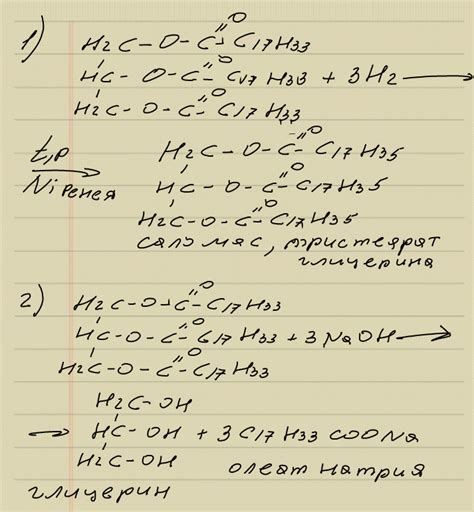 1) H2C - O - C =O C17H33
HC - O - C =O C17H33 + 3H2 ⟶
H2C - O - C =O C17H33
t,p ⟶ Ni Ренея
H2C - O - C =O C17H35
HC - O - C =O C17H35
H2C - O - C =O C17H35
саломас, тристеарат
глицерина
2) H2C - O - C =O C17H33
HC - O - C =O C17H33 + 3NaOH ⟶
H2C - O - C =O C17H33
H2C - OH
⟶ HC - OH + 3C17H33COONa
H2C - OH олеат натрия
глицерин